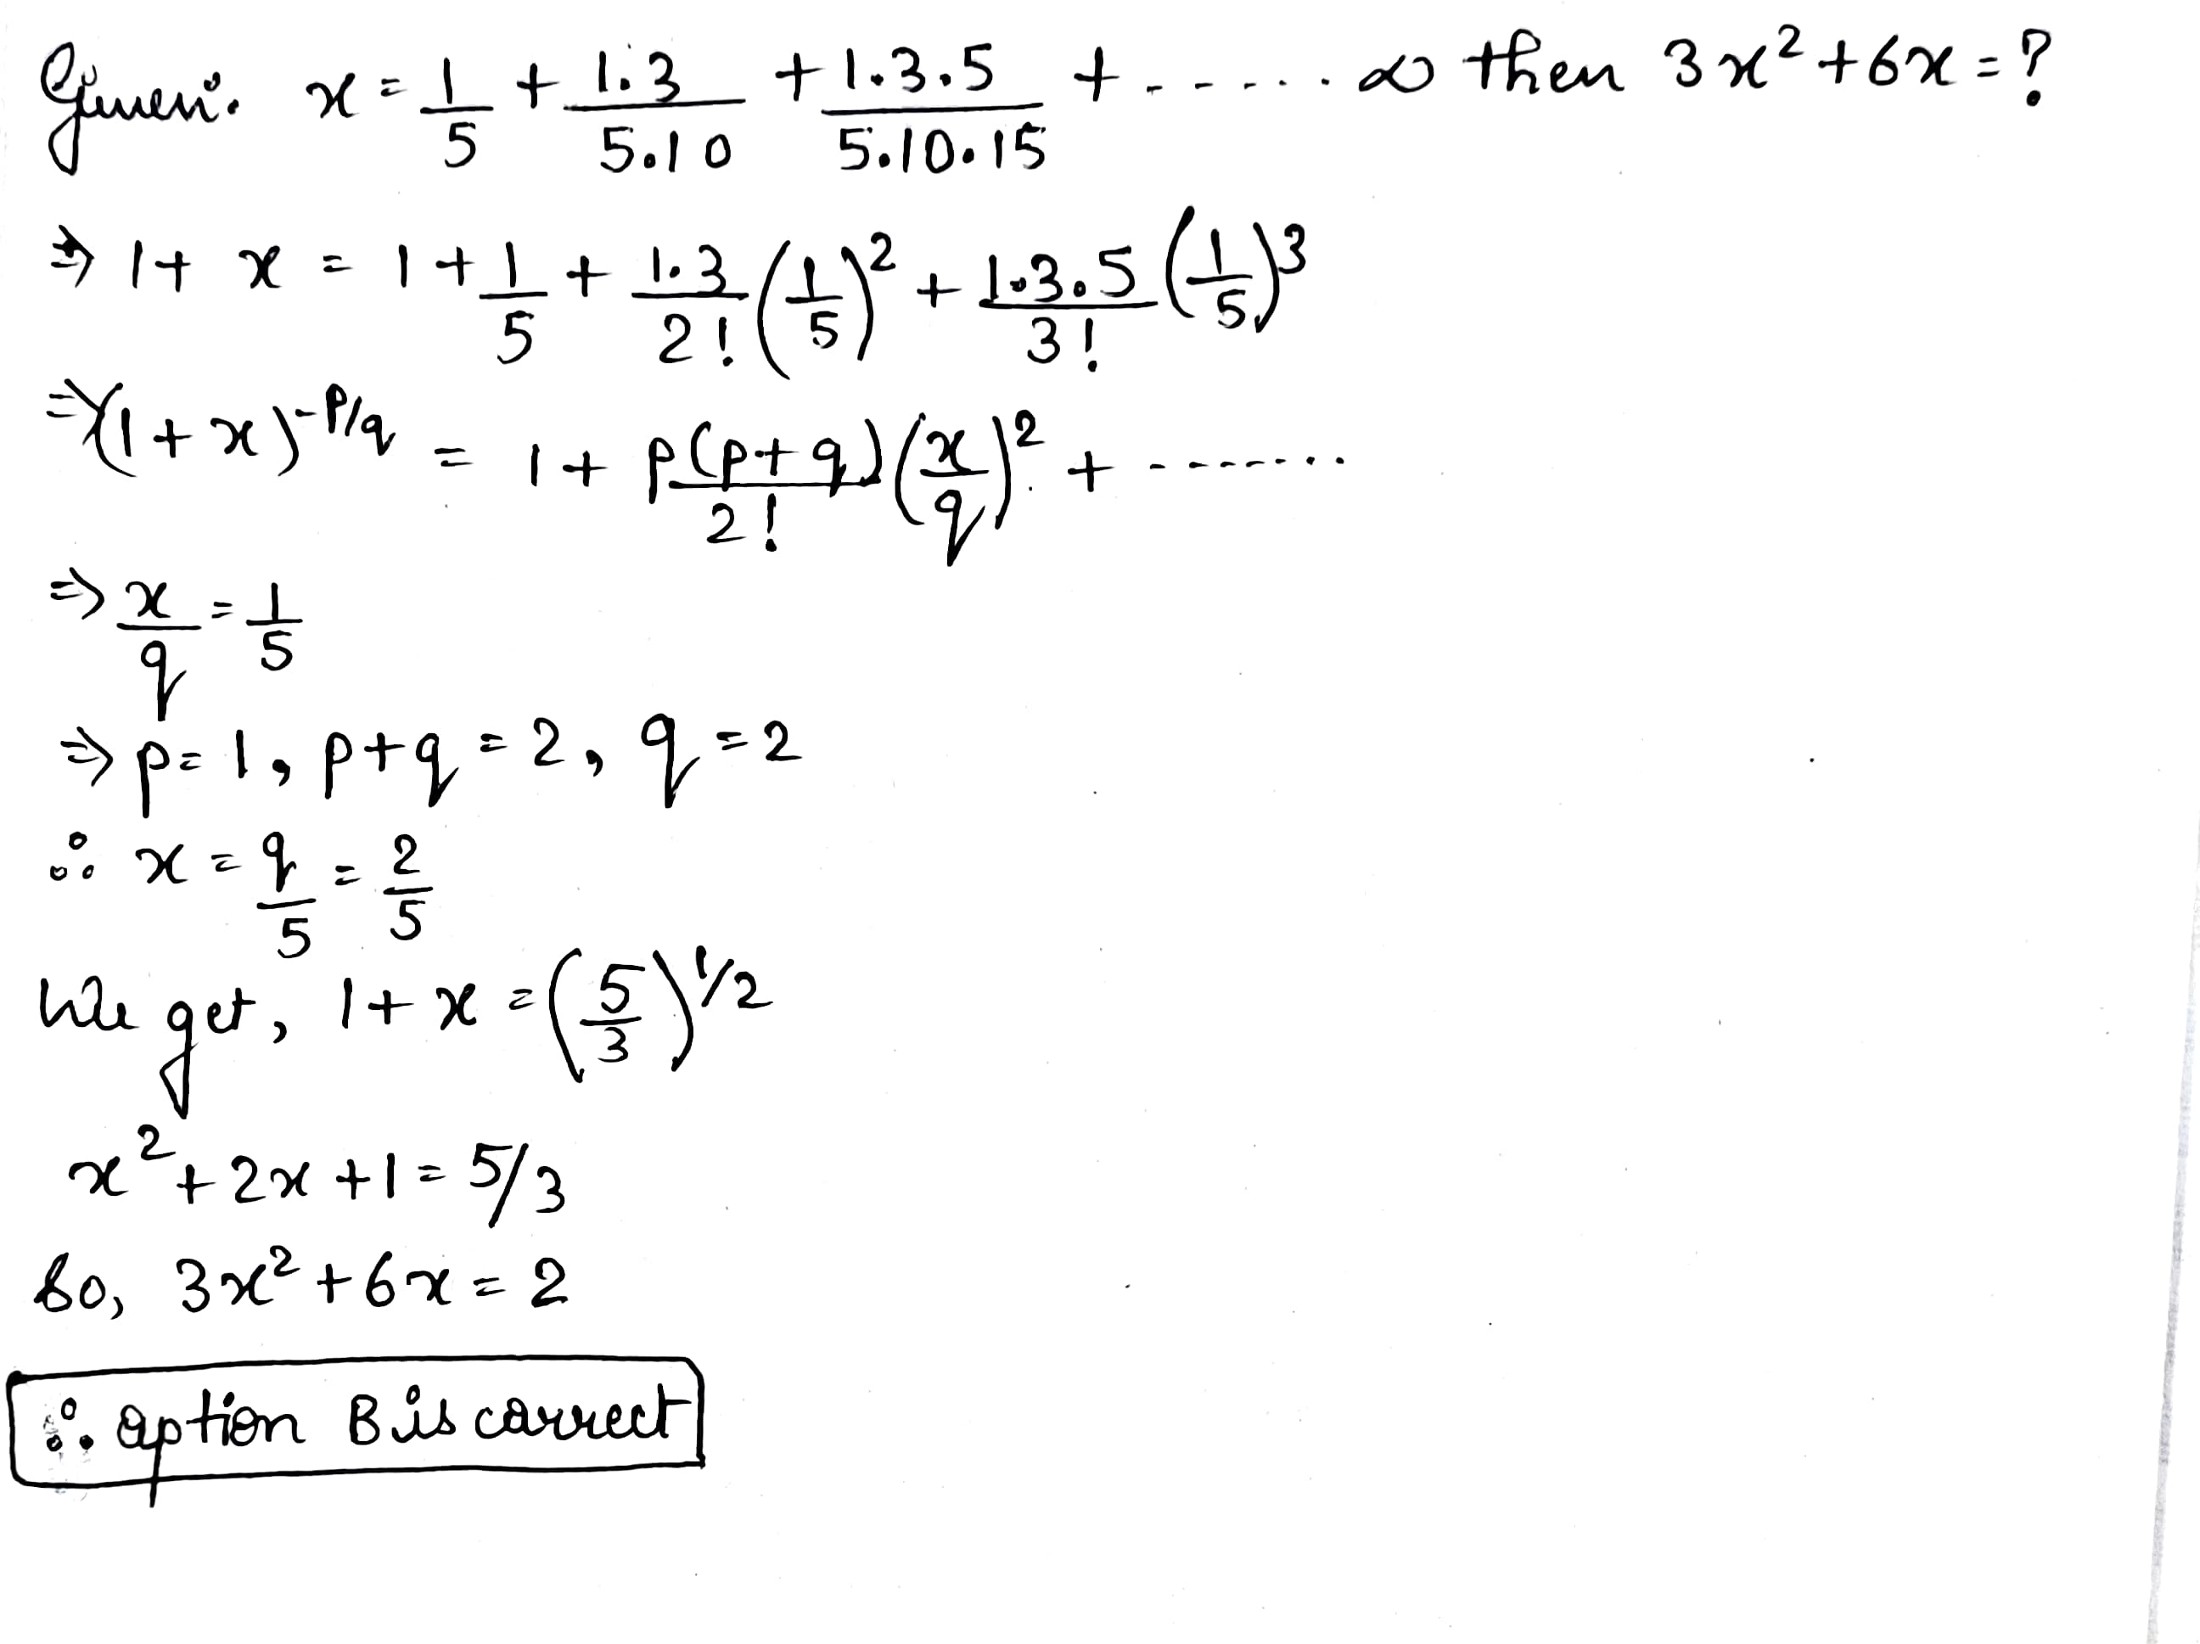 Given: x = 1/5 + 1.3/5.10 + 1.3.5/5.10.15 + ------ ∞ then 3x² + 6x = ?
⇒ 1 + x = 1 + 1/5 + 1.3/2! (1/5)² + 1.3.5/3! (1/5)³
⇒ (1+x)^-p/q = 1 + p(p+q)/2! (x/q)² + --------
⇒ x/q = 1/5
⇒ p = 1, p+q = 2, q = 2
∴ x = q/5 = 2/5
We get, 1 + x = (5/3)^1/2
x² + 2x + 1 = 5/3
So, 3x² + 6x = 2
∴ option B is correct